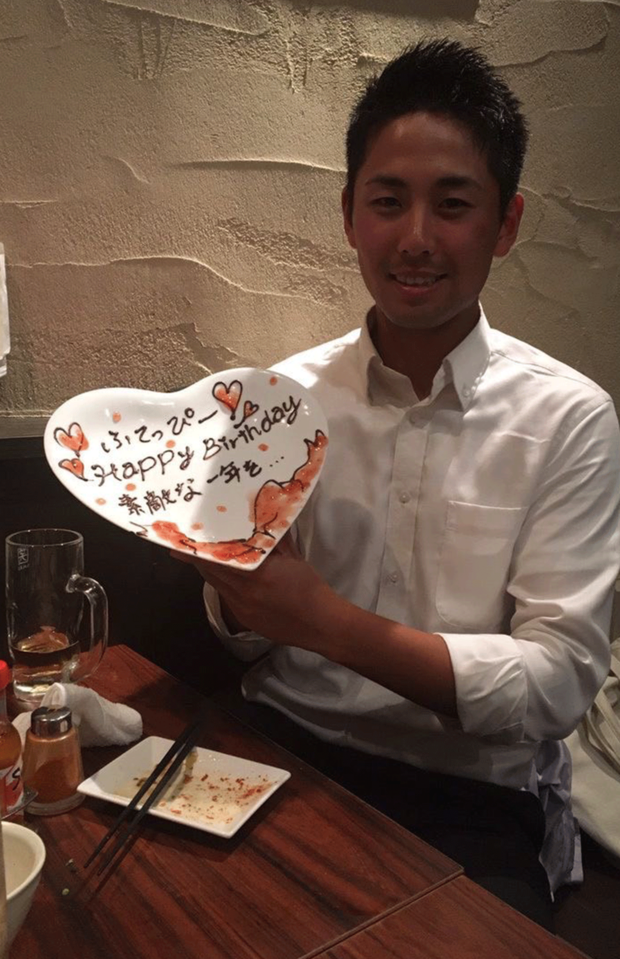 ふてっぴー
Happy Birthday
素敵な一年を…